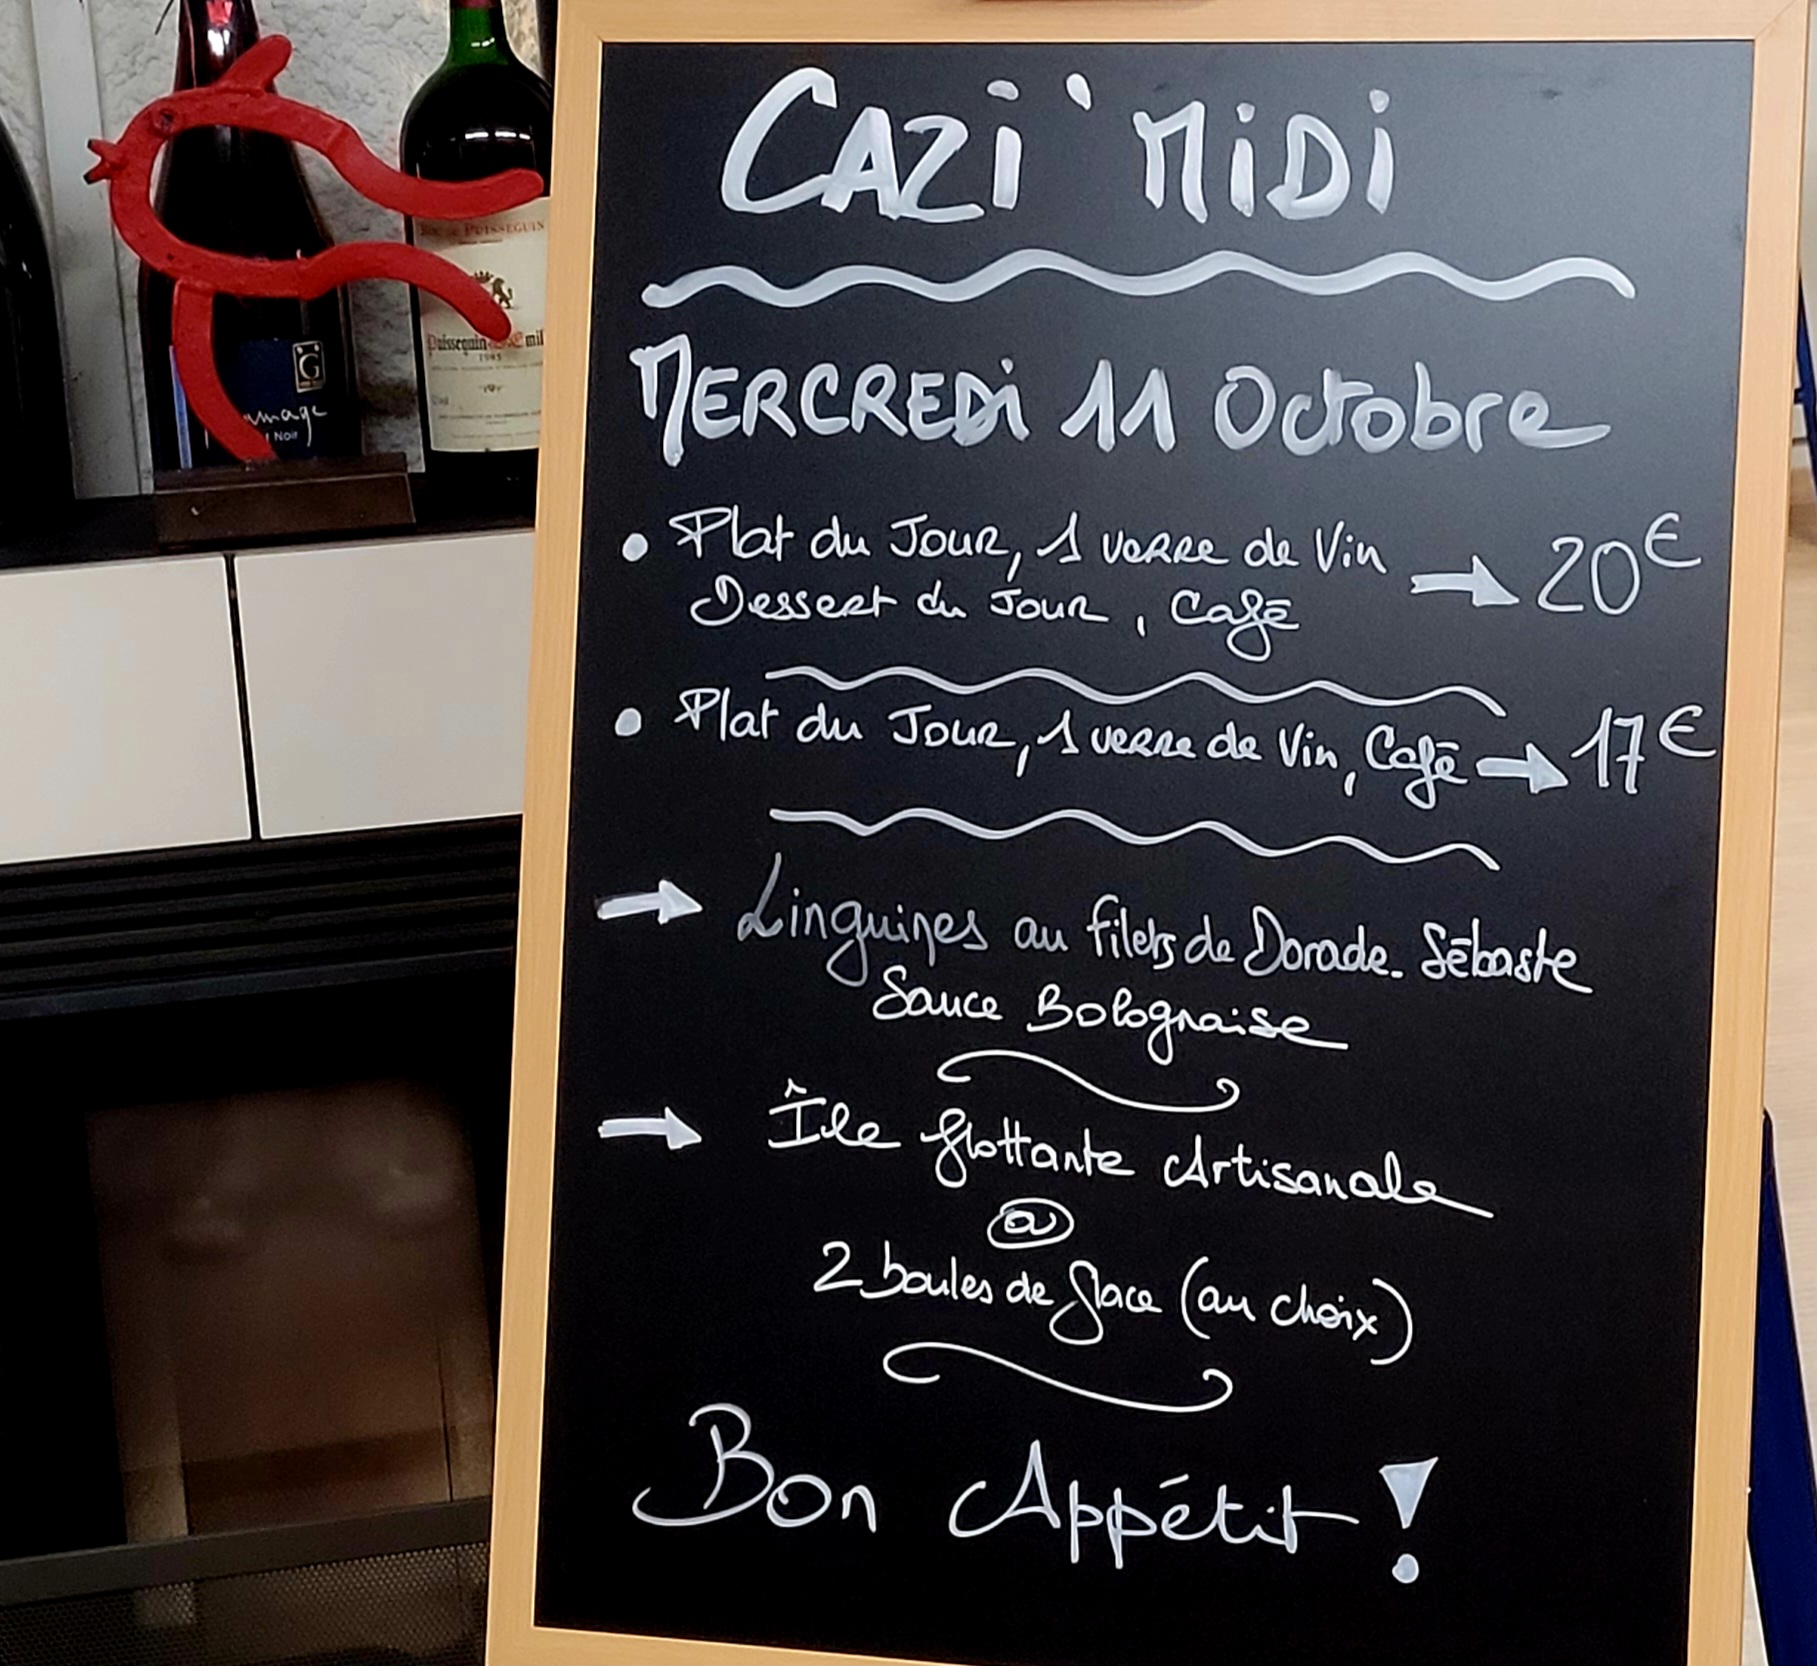 CAZI'MIDI
MERCREDi 11 Octobre
• Plat du Jour, 1 verre de Vin → 20€
Dessert du Jour, Café
• Plat du Jour, 1 verre de Vin, Café → 17€
→ Linguines au filets de Dorade. Sébaste
Sauce Bolognaise
→ Île flottante Artisanale
ou
2 boules de glace (au choix)
Bon Appétit !
PUISSEGUIN
Puisseguin
1985
G
Noir